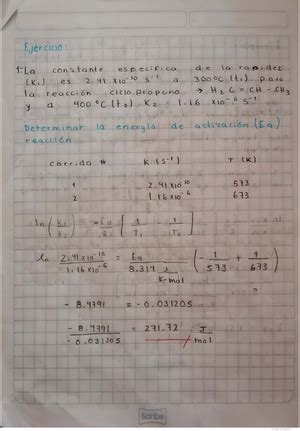 Ejercicio:
1-La constante especifica de la rapidez
(K₁) es 2.41 x10⁻¹⁰ s⁻¹ a 300°C (t₁) para
la reacción ciclopropano → H₂C = CH - CH₃
y a 400°C (t₂) K₂ = 1.16 x10⁻⁶ s⁻¹
Determinar la energía de activación (Ea)
reacción
corrida # K (s⁻¹) T (K)
1 2.41 x10⁻¹⁰ 573
2 1.16 x10⁻⁶ 673
ln (K₁/K₂) = -Ea/R [1/T₂ - 1/T₁]
ln 2.41 x10⁻¹⁰ / 1.16 x10⁻⁶ = Ea / 8.314 J/K·mol (-1/573 + 1/673)
- 8.4791 = - 0.031205
- 8.4791 / - 0.031205 = 271.72 J/mol
Scribe